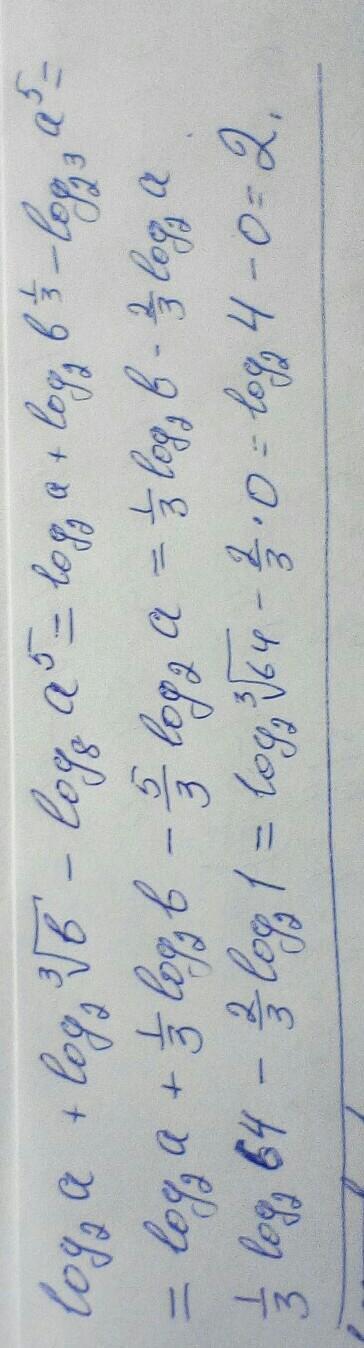 log₂a + log₂∛b − log₈a⁵ = log₂a + log₂b^(1/3) − log_(2³)a⁵ =
= log₂a + 1/3 log₂b − 5/3 log₂a = 1/3 log₂b − 2/3 log₂a
1/3 log₂64 − 2/3 log₂1 = log₂∛64 − 2/3 · 0 = log₂4 − 0 = 2.